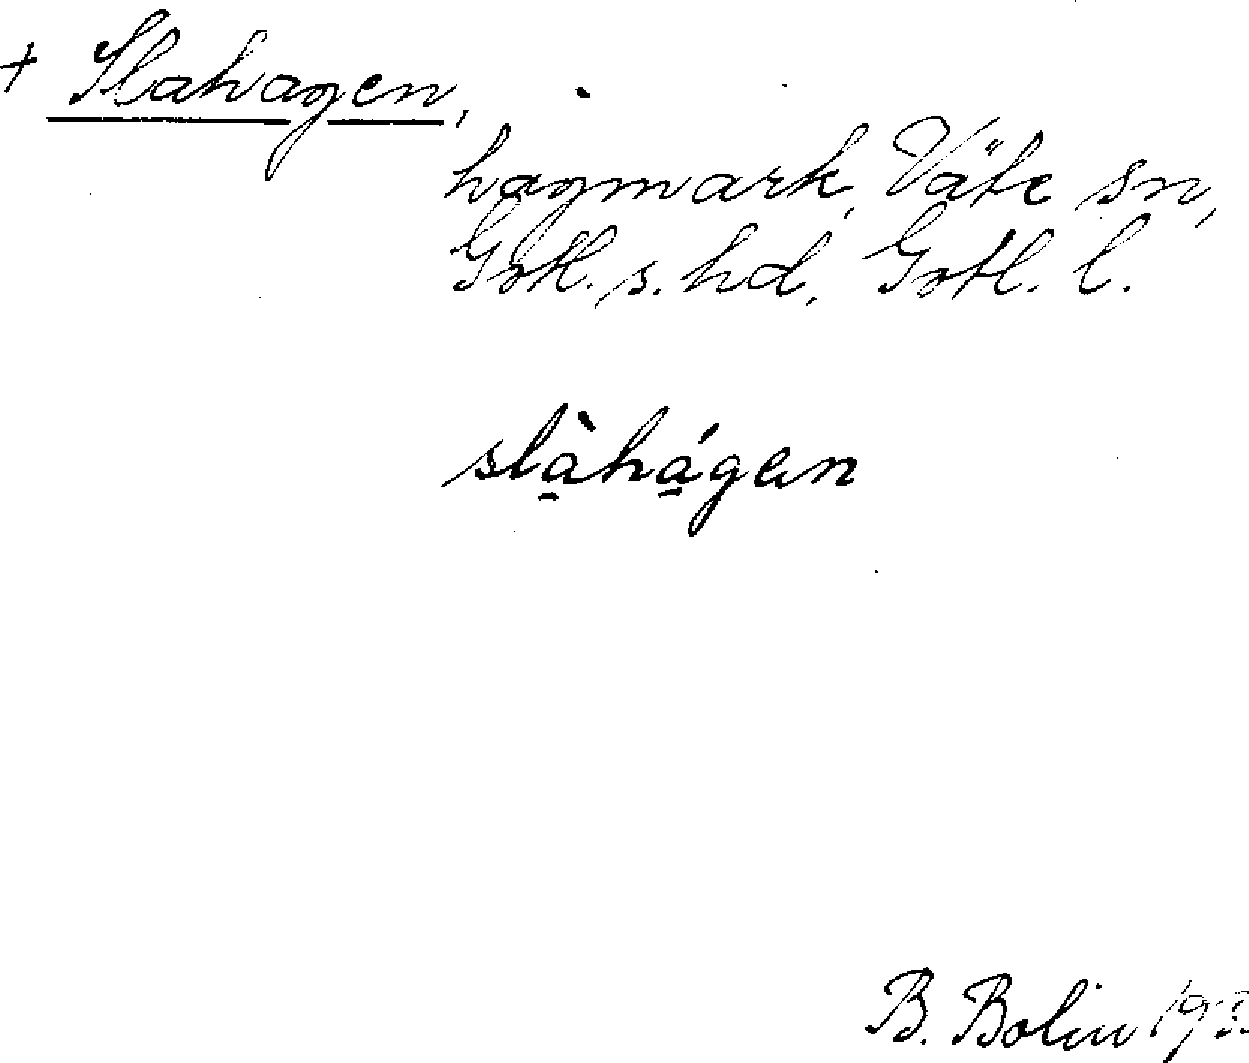 + Slahagen,
hagmark, Väte sn,
Gotl. s. hd, Gotl. l.
slà̱há̱gen
B. Bolin